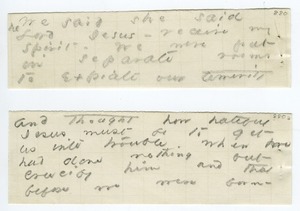 he
We said she said
Lord Jesus - receive my
spirit - We were put
in separate rooms
to expiate our temerity
and thought how hateful
Jesus must be to get
us into trouble when we
had done nothing but
crucify him and that
before we were born -